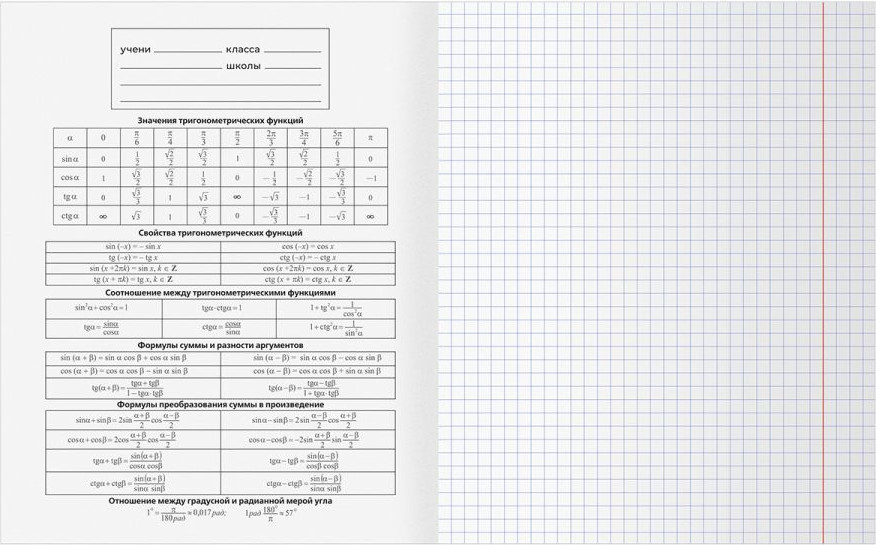 учени класса
школы
Значения тригонометрических функций
α 0 π/6 π/4 π/3 π/2 2π/3 3π/4 5π/6 π
sin α 0 1/2 √2/2 √3/2 1 √3/2 √2/2 1/2 0
cos α 1 √3/2 √2/2 1/2 0 −1/2 −√2/2 −√3/2 −1
tg α 0 √3/3 1 √3 ∞ −√3 −1 −√3/3 0
ctg α ∞ √3 1 √3/3 0 −√3/3 −1 −√3 ∞
Свойства тригонометрических функций
sin (−x) = − sin x cos (−x) = cos x
tg (−x) = − tg x ctg (−x) = − ctg x
sin (x +2πk) = sin x, k ∈ Z cos (x +2πk) = cos x, k ∈ Z
tg (x + πk) = tg x, k ∈ Z ctg (x + πk) = ctg x, k ∈ Z
Соотношение между тригонометрическими функциями
sin²α + cos²α = 1 tgα·ctgα = 1 1 + tg²α = 1/cos²α
tgα = sinα/cosα ctgα = cosα/sinα 1 + ctg²α = 1/sin²α
Формулы суммы и разности аргументов
sin (α + β) = sin α cos β + cos α sin β sin (α − β) = sin α cos β − cos α sin β
cos (α + β) = cos α cos β − sin α sin β cos (α − β) = cos α cos β + sin α sin β
tg(α + β) = (tgα + tgβ)/(1 − tgα·tgβ) tg(α − β) = (tgα − tgβ)/(1 + tgα·tgβ)
Формулы преобразования суммы в произведение
sinα + sinβ = 2sin (α+β)/2 cos (α−β)/2 sinα − sinβ = 2sin (α−β)/2 cos (α+β)/2
cosα + cosβ = 2cos (α+β)/2 cos (α−β)/2 cosα − cosβ = −2sin (α+β)/2 sin (α−β)/2
tgα + tgβ = sin(α+β)/cosα cosβ tgα − tgβ = sin(α−β)/cosβ cosβ
ctgα + ctgβ = sin(α+β)/sinα sinβ ctgα − ctgβ = sin(α−β)/sinα sinβ
Отношение между градусной и радианной мерой угла
1° = π/180 рад ≈ 0,017 рад; 1рад 180°/π ≈ 57°